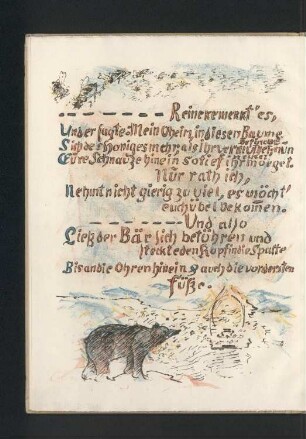 Reineke merkt' es,
Und er sagte: Mein Oheim, in diesen Baume
befindet
Sich des Honiges mehr, als Ihr vermutet, nun
Eure Schnauze hinein so tief ihr möget.
Nur rath ich,
Nehmt nicht gierig zu viel, es möcht'
euch übel bekom̄en.
Und also
Ließ der Bär sich bethören und
steckte den Kopf in die Spalte
Bis an die Ohren hinein & auch die vordersten
Füße.